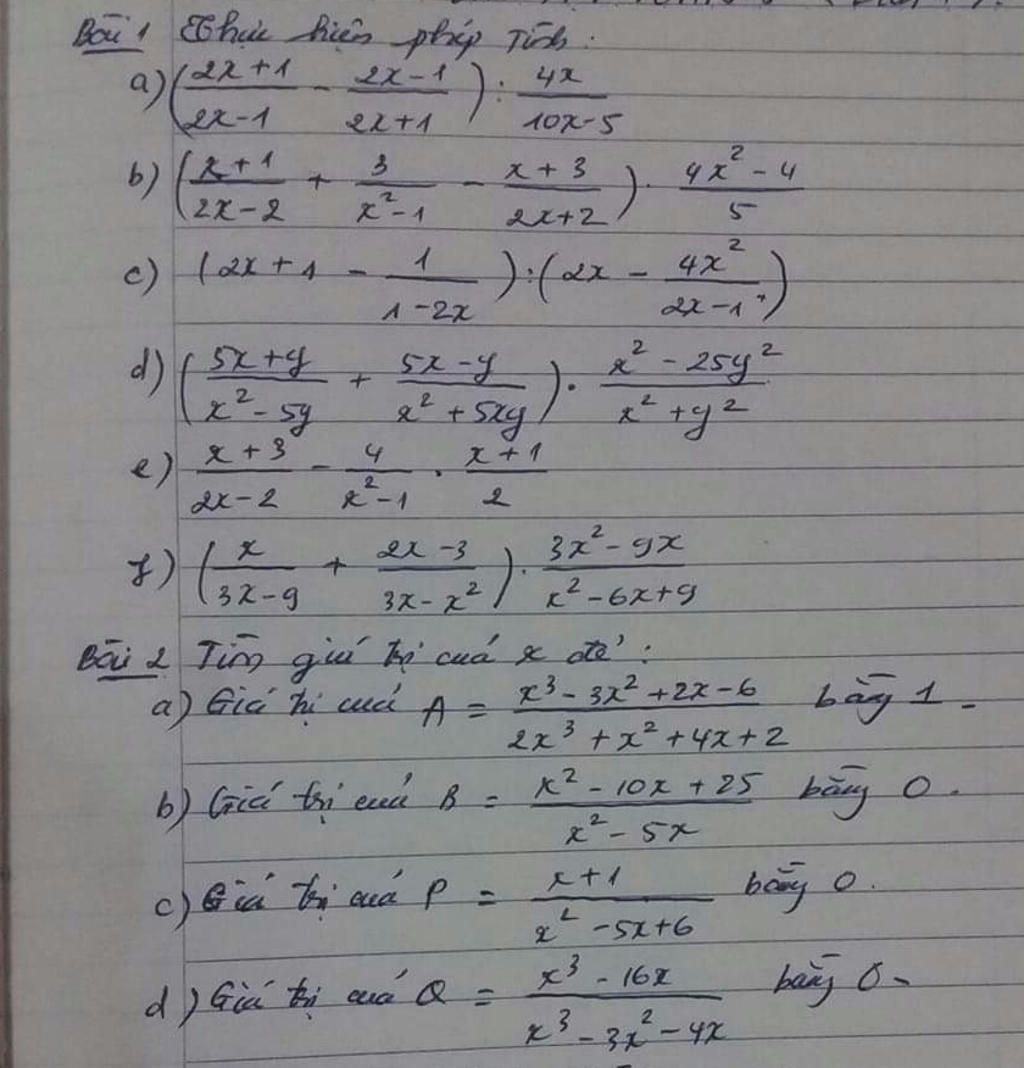 Bài 1 Thực hiện phép tính:
a) ((2x+1)/(2x-1) - (2x-1)/(2x+1)) : 4x/(10x-5)
b) ((x+1)/(2x-2) + 3/(x²-1) - (x+3)/(2x+2)) . (4x²-4)/5
c) (2x+1 - 1/(1-2x)) : (2x - 4x²/(2x-1))
d) ((5x+y)/(x²-5y) + (5x-y)/(x²+5xy)) . (x²-25y²)/(x²+y²)
e) (x+3)/(2x-2) - 4/(x²-1) . (x+1)/2
f) (x/(3x-9) + (2x-3)/(3x-x²)) . (3x²-9x)/(x²-6x+9)
Bài 2 Tìm giá trị của x để:
a) Giá trị của A = (x³-3x²+2x-6)/(2x³+x²+4x+2) bằng 1.
b) Giá trị của B = (x²-10x+25)/(x²-5x) bằng 0.
c) Giá trị của P = (x+1)/(x²-5x+6) bằng 0.
d) Giá trị của Q = (x³-16x)/(x³-3x²-4x) bằng 0.